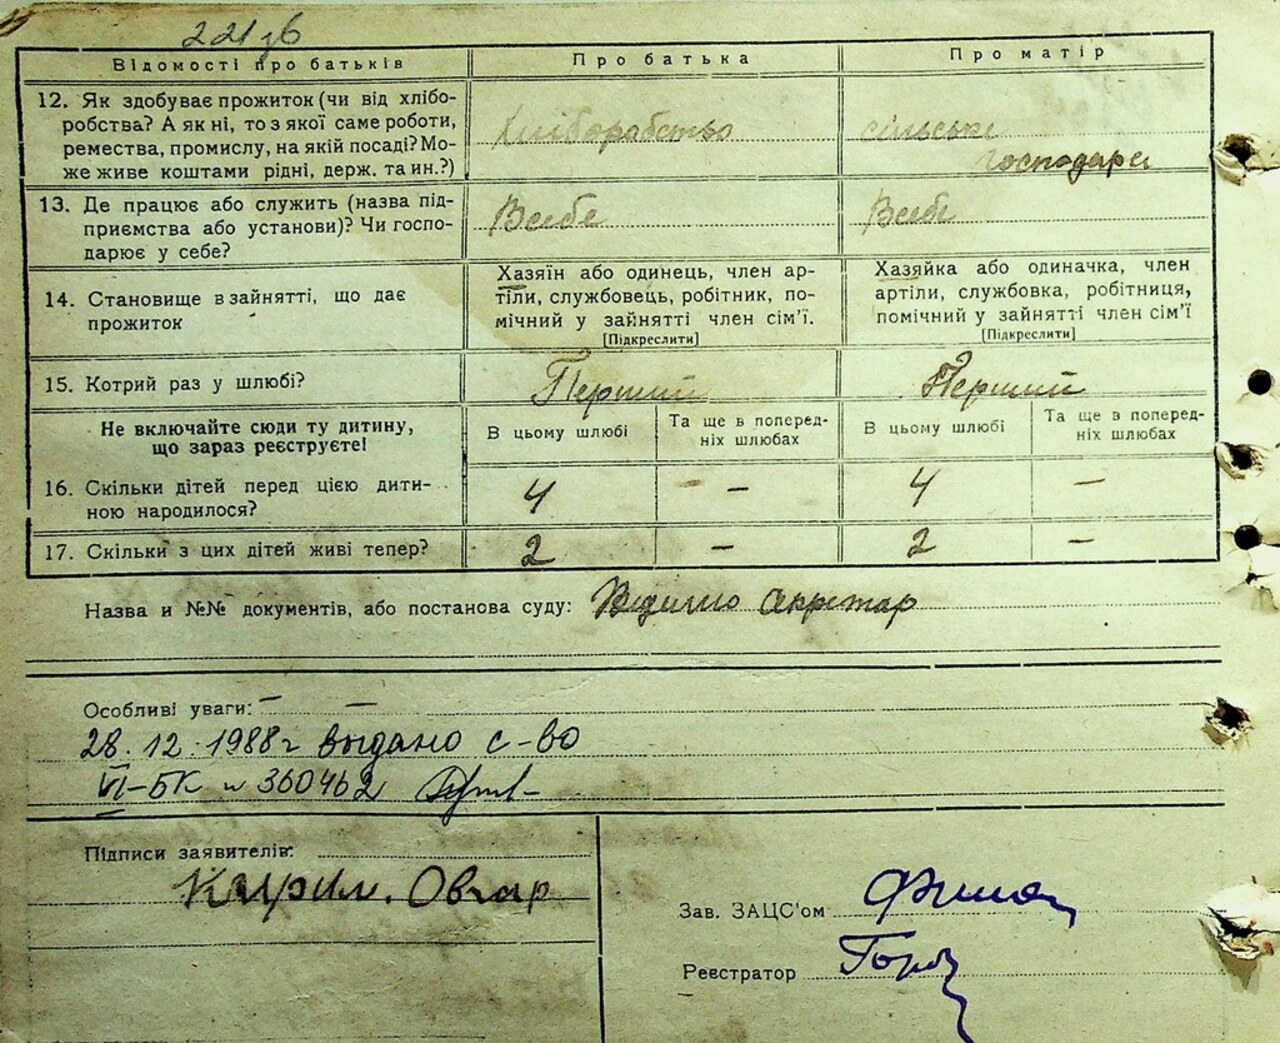 221зв
Відомості про батьків
Про батька
Про матір
12. Як здобуває прожиток (чи від хлібо-
робства? А як ні, то з якої саме роботи,
ремества, промислу, на якій посаді? Мо-
же живе коштами рідні, держ. та ин.?)
Хліборобство
сільське
господарс
13. Де працює або служить (назва під-
приємства або установи)? Чи госпо-
дарює у себе?
Всебе
Всебе
14. Становище в зайнятті, що дає
прожиток
Хазяїн або одинець, член ар-
тіли, службовець, робітник, по-
мічний у зайнятті член сім'ї.
[Підкреслити]
Хазяйка або одиначка, член
артіли, службовка, робітниця,
помічний у зайнятті член сім'ї
[Підкреслити]
15. Котрий раз у шлюбі?
Перший
Перший
Не включайте сюди ту дитину,
що зараз реєструєте!
В цьому шлюбі
Та ще в поперед-
ніх шлюбах
В цьому шлюбі
Та ще в поперед-
ніх шлюбах
16. Скільки дітей перед цією дити-
ною народилося?
4 – 4 –
17. Скільки з цих дітей живі тепер?
2 – 2 –
Назва и №№ документів, або постанова суду: Секретар
Особливі уваги: – –
28.12.1988г выдано с-во
VI-БК № 360462
Підписи заявителів:
Кирил. Овчар
Зав. ЗАЦС'ом
Реєстратор